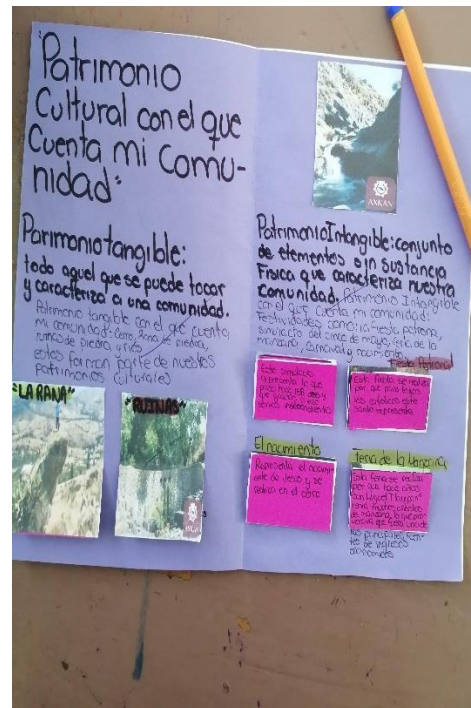 "Patrimonio
Cultural con el que
Cuenta mi Comu-
nidad"
Parimonio tangible:
todo aquel que se puede tocar
y caracteriza a una comunidad.
Patrimonio tangible con el que cuenta
mi comunidad: Cerro, Zona de piedra,
ruinas de piedra y río,
estos forman parte de nuestros
patrimonios culturales
"LA RANA"
"RUINAS"
AXKAN
AXKAN
Patrimonio Intangible: conjunto
de elementos sin sustancia
Física que caracteriza nuestra
comunidad. Patrimonio Intangible
con el que cuenta mi comunidad:
Festividades como: la fiesta patronal,
simulacro del cinco de mayo, feria de la
manzana, carnaval y nacimiento.
Fiesta Patronal
Este simulacro
representa lo que
paso hace años y
que gracias a eso
somos independientes
Esta fiesta se realiza
por que para todos
los católicos este
santo representa
El nacimiento
Representa el nacimi-
ento de Jesús y se
realiza en el
feria de la manzana
Esta feria se realiza
por que hace años
San Miguel
tenia árboles
de manzana, lo que
que fuera una de
las principales fuen-
tes de ingresos
económicos